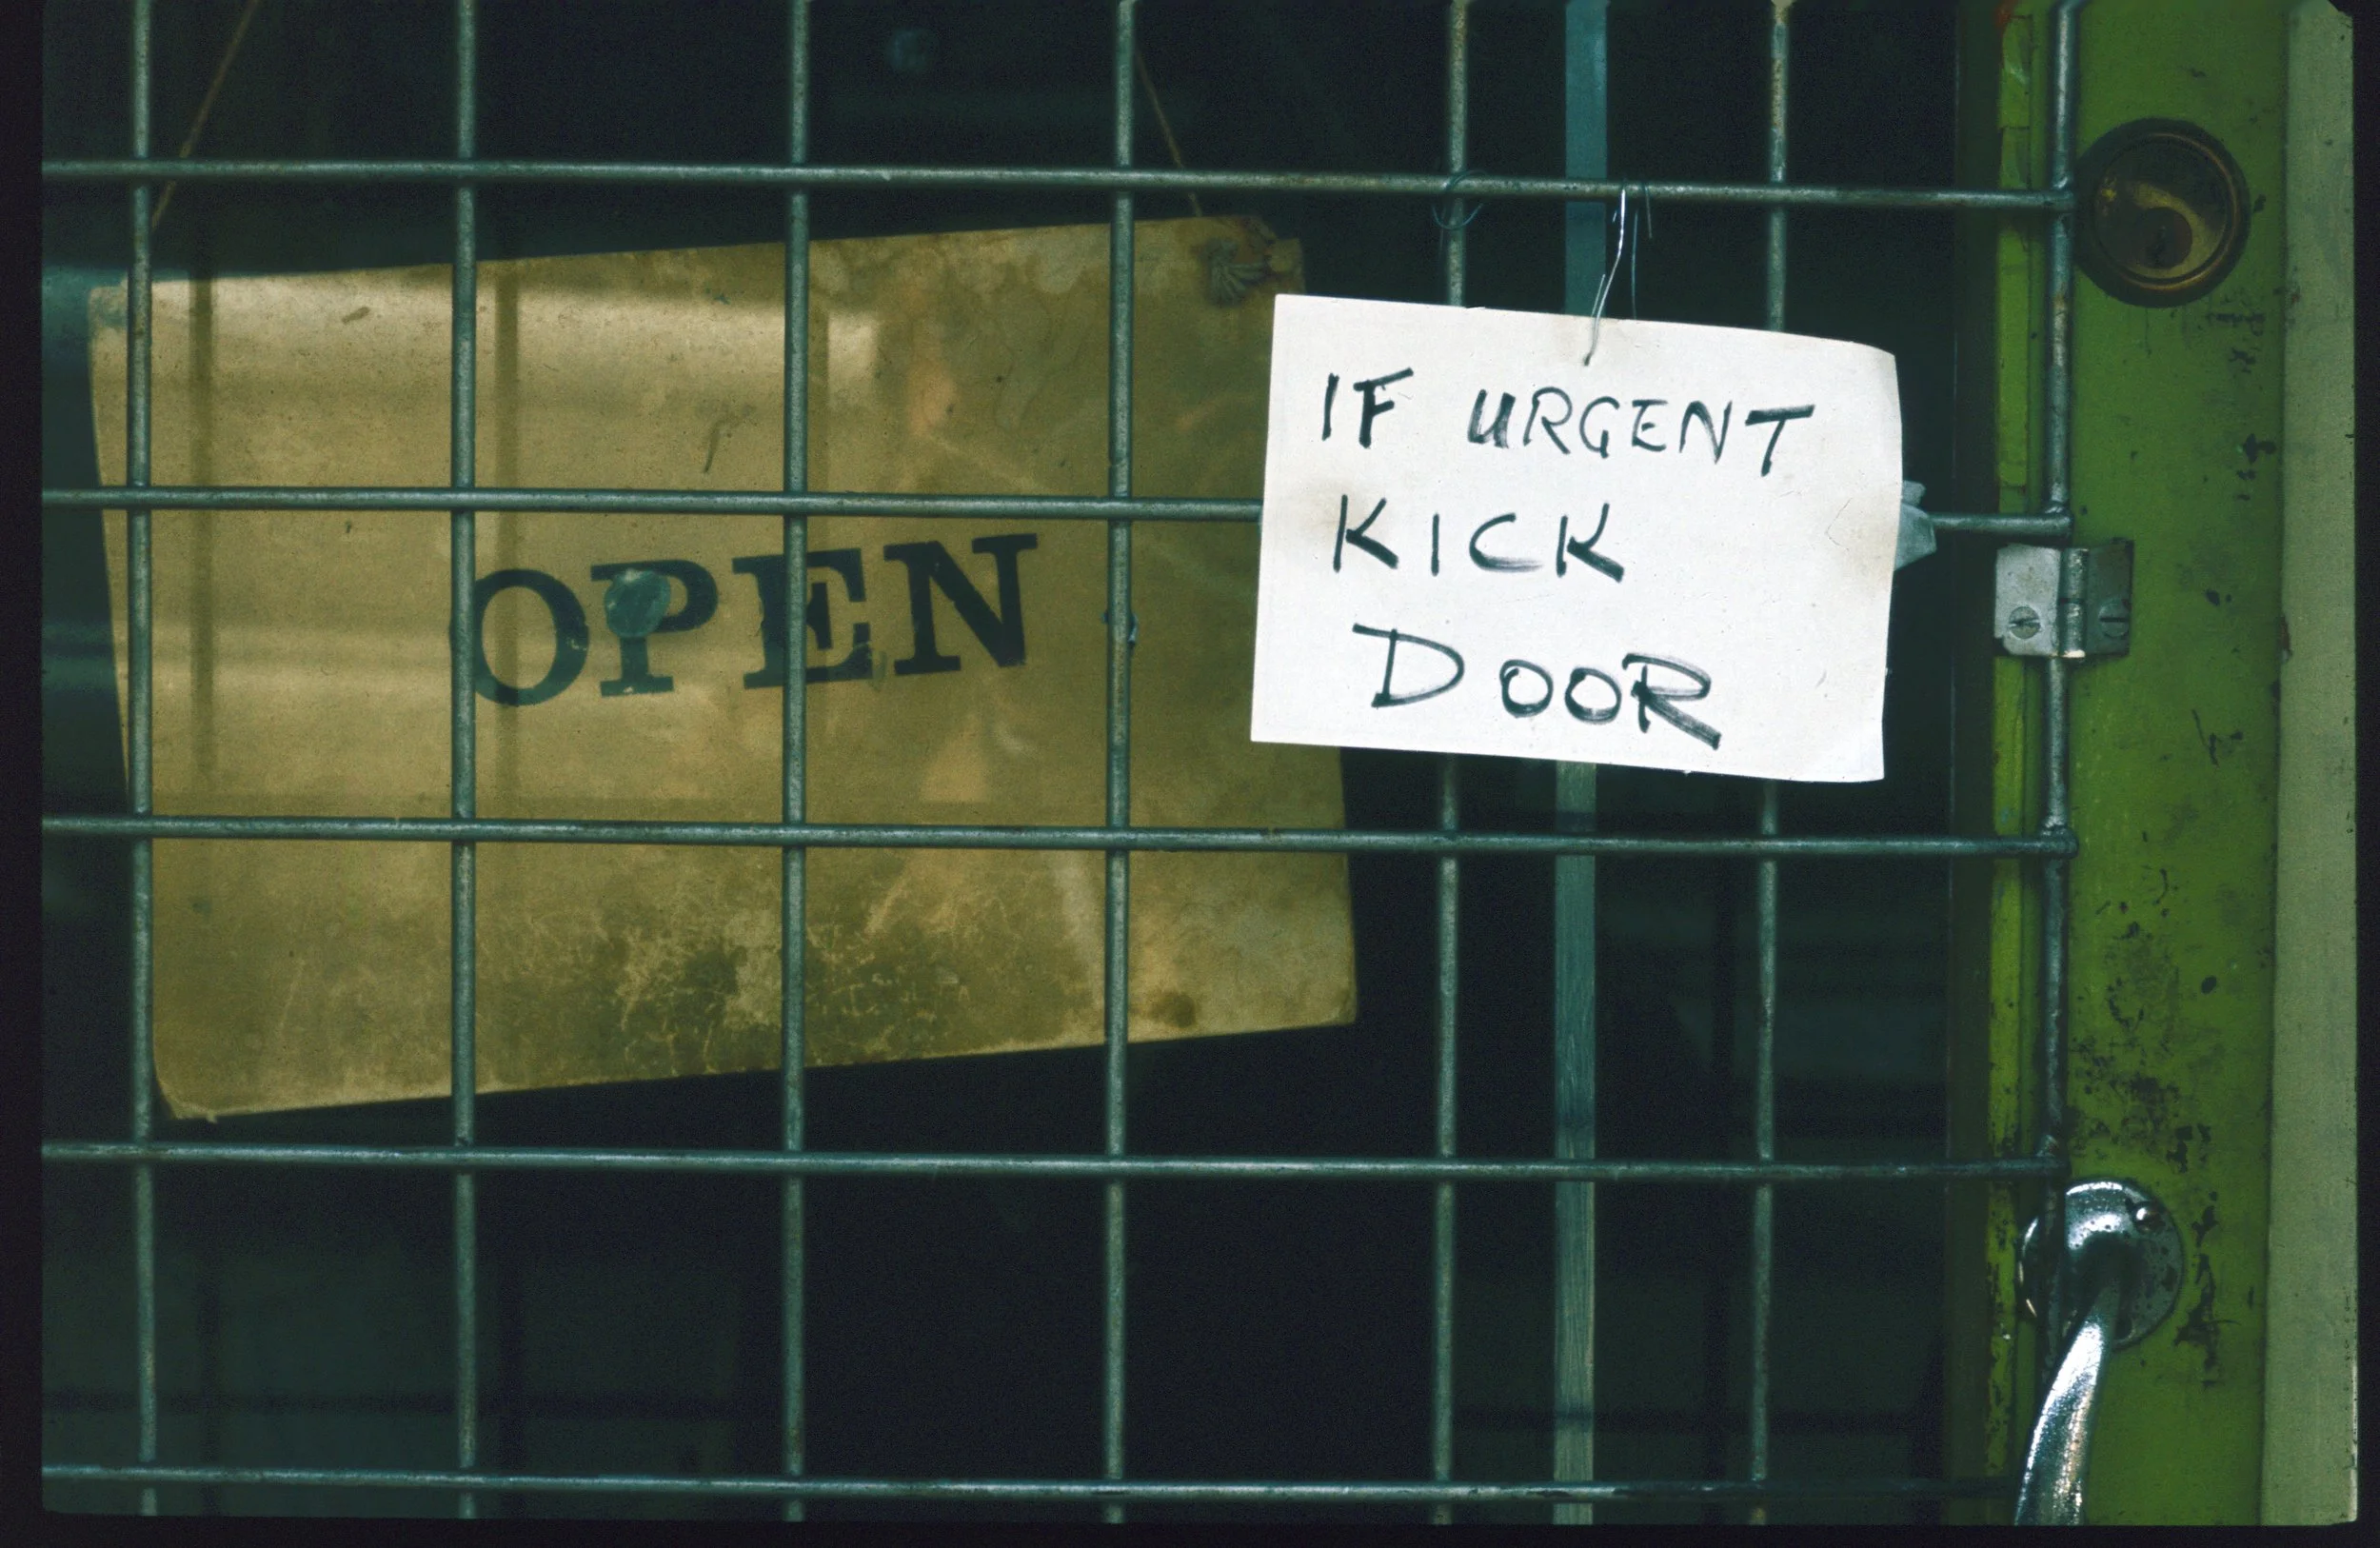 OPEN
IF URGENT
KICK
DOOR